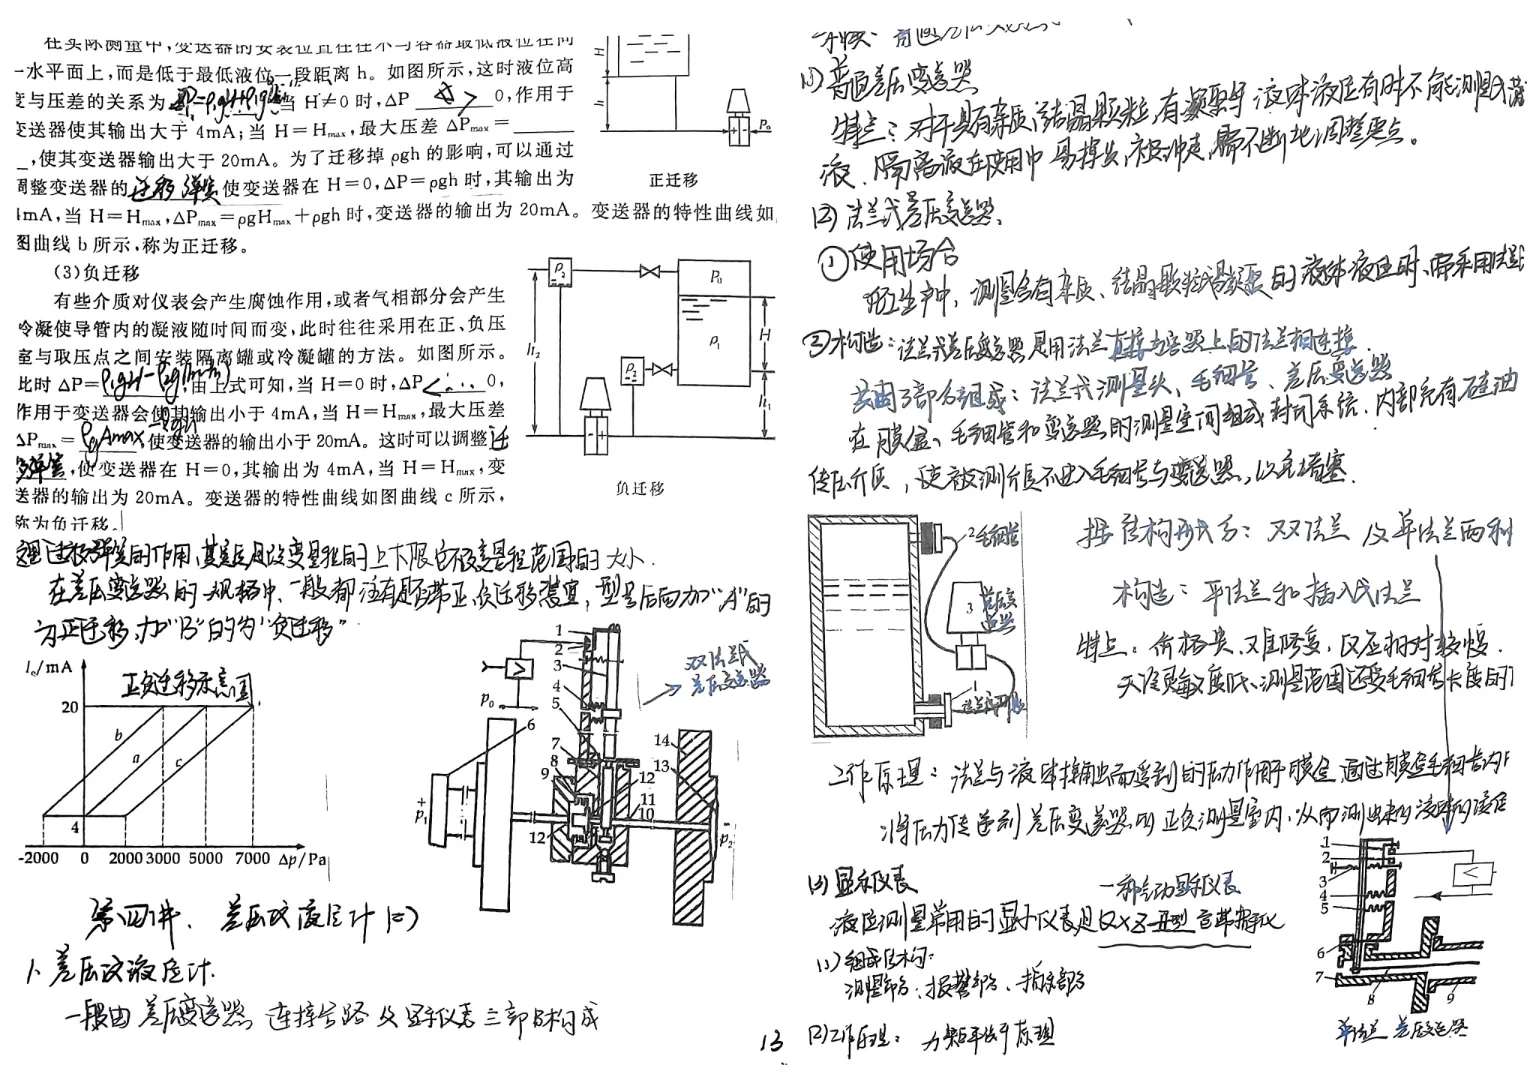 在实际测量中,变送器的安装位置往往不与容器最低液位在同
一水平面上,而是低于最低液位一段距离 h。如图所示,这时液位高
度与压差的关系为 当 H≠0 时,ΔP > 0,作用于
变送器使其输出大于 4mA;当 H=Hmax,最大压差 ΔPmax=
,使其变送器输出大于 20mA。为了迁移掉 ρgh 的影响,可以通过
调整变送器的迁移弹簧使变送器在 H=0,ΔP=ρgh 时,其输出为
4mA,当 H=Hmax,ΔPmax=ρgHmax+ρgh 时,变送器的输出为 20mA。变送器的特性曲线如
图曲线 b 所示,称为正迁移。
H
h
P₀
正迁移
(3)负迁移
有些介质对仪表会产生腐蚀作用,或者气相部分会产生
冷凝使导管内的凝液随时间而变,此时往往采用在正、负压
室与取压点之间安装隔离罐或冷凝罐的方法。如图所示。
此时 ΔP= 由上式可知,当 H=0 时,ΔP < 0,
作用于变送器会使其输出小于 4mA,当 H=Hmax,最大压差
ΔPmax= 使变送器的输出小于 20mA。这时可以调整迁
移弹簧,使变送器在 H=0,其输出为 4mA,当 H=Hmax,变
送器的输出为 20mA。变送器的特性曲线如图曲线 c 所示,
称为负迁移。
ρ₂
P₀
H
h₂
ρ₁
ρ₂
h₁
负迁移
通过迁移弹簧的作用,其实质是改变量程的上下限它不改变量程范围的大小.
在差压变送器的规格中,一般都注有是否带正、负迁移装置,型号后面加"A"的
为正迁移,加"B"的为"负迁移".
I₀/mA
正负迁移示意图
20
b
a
c
4
-2000 0 2000 3000 5000 7000 Δp/Pa
双法兰式
差压变送器
1
2
3
4
p₀
5
6
7
8
9
14
13
12
11
10
12
+
p₁
-
p₂
第四讲. 差压式液位计(二)
1、差压式液位计.
一般由差压变送器 连接管路 及 显示仪表 三部分构成
(1)普通差压变送器
特点:对于具有杂质、结晶颗粒,有凝聚等液体液位有时不能测量或灌
液.隔离液在使用中易挥发,被冲走,需不断地调整零点。
(2)法兰式差压变送器.
①使用场合
在生产中,测量含有杂质、结晶颗粒或易凝聚的液体液位时,需采用法兰
②构造:法兰式差压变送器是用法兰直接与容器上的法兰相连接.
共由3部分组成:法兰式测量头、毛细管、差压变送器
在膜盒、毛细管和变送器的测量室间组成封闭系统.内部充有硅油
传压介质,使被测介质不进入毛细管与变送器,以免堵塞.
2毛细管
3
差压变送器
1
法兰式测量头
按结构形式分:双法兰 及 单法兰两种
构造:平法兰和插入式法兰
特点:价格贵、难修复、反应相对较慢.
灵敏度低、测量范围还受毛细管长度的
工作原理:法兰与液体接触而受到的压力作用于膜盒,通过膜盒毛细管内
将压力传递到差压变送器的正负测量室内,从而测出来的液体的液位
(3)显示仪表
一种气动显示仪表
液位测量常用的显示仪表是QXZ-型色带指示仪
(1)组成结构:
测量部分、报警部分、指示部分
(2)工作原理:力矩平衡原理
1
2
3
4
5
6
7
8
9
单法兰 差压变送器
13